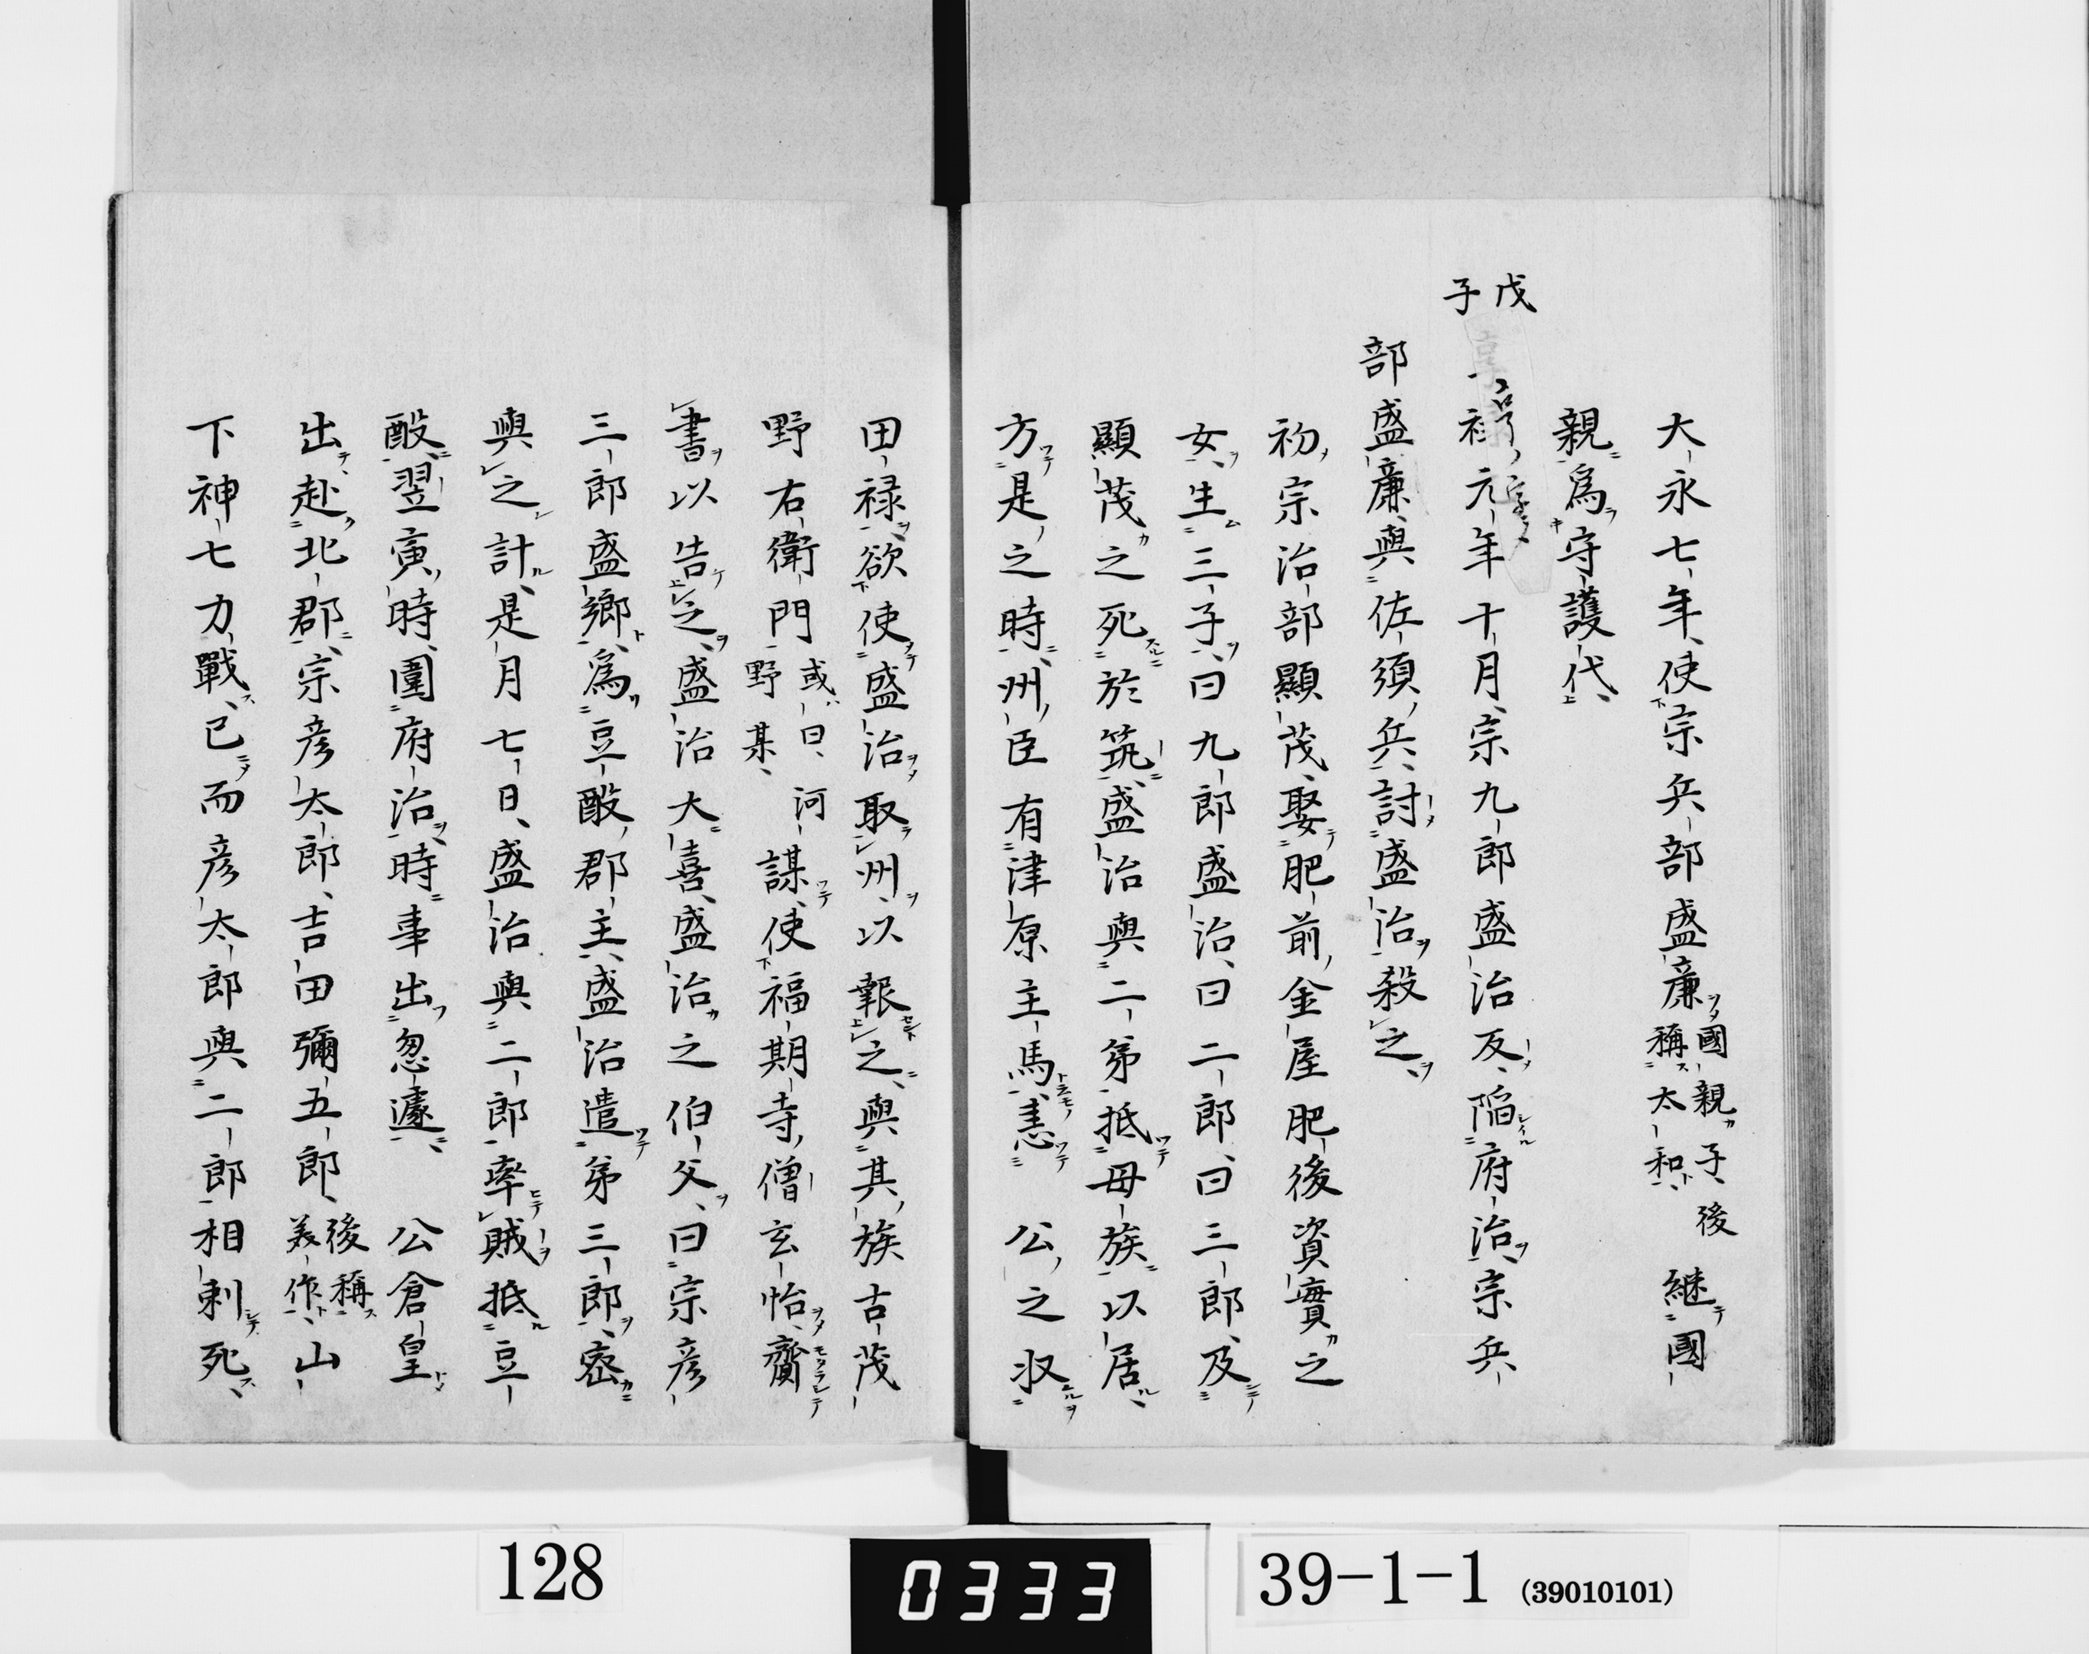 大永七年使宗兵部盛廉國親子後稱太和継國
親爲守護代
戊子
享禄元年十月宗九郎盛治反陥府治宗兵
部盛廉與佐須兵討盛治殺之
初宗治部顯茂娶肥前金屋肥後資實之
女生三子曰九郎盛治曰二郎曰三郎及
顯茂之死於筑盛治與二弟抵母族以居
方是之時州臣有津原主馬恚公之収
田禄欲使盛治取州以報之與其族古茂
野右衛門或曰河野某謀使福期寺僧玄怡齎
書以告之盛治大喜盛治之伯父曰宗彦
三郎盛郷爲豆酘郡主盛治遣弟三郎密
與之計是月七日盛治與二郎率賊抵豆
酘翌寅時圍府治時事出忽遽公倉皇
出赴北郡宗彦太郎吉田彌五郎後稱美作山
下神七力戰已而彦太郎與二郎相刺死
128
0333
39-1-1 (39010101)